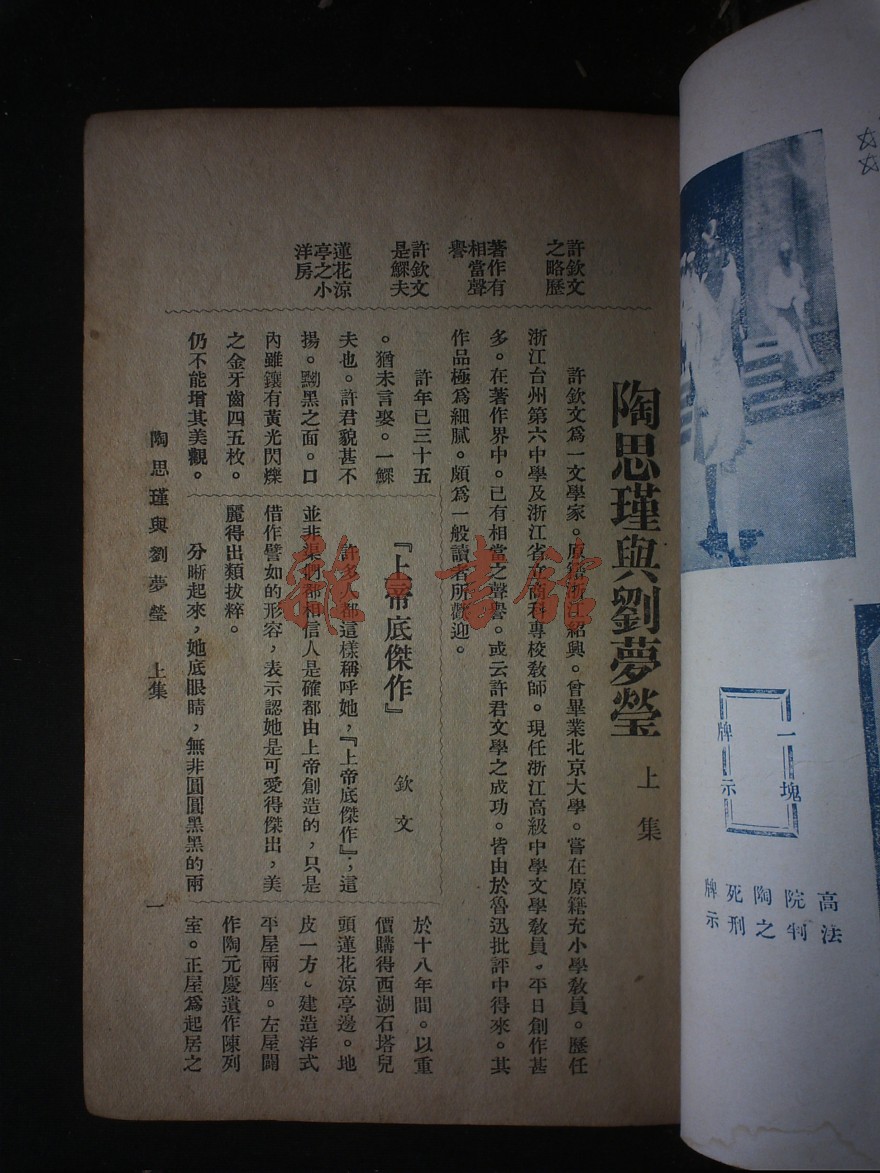 一塊
牌示
高法
院判
陶之
死刑
牌示
陶思瑾與劉夢瑩 上集
許欽文
之略歷
著作有
相當聲
譽
許欽文
是鰥夫
蓮花涼
亭之小
洋房
許欽文爲一文學家。原籍浙江紹興。曾畢業北京大學。嘗在原籍充小學敎員。歷任
浙江台州第六中學及浙江省立商科專校敎師。現任浙江高級中學文學敎員。平日創作甚
多。在著作界中。已有相當之聲譽。或云許君文學之成功。皆由於魯迅批評中得來。其
作品極爲細膩。頗爲一般讀者所歡迎。
許年已三十五
。猶未言娶。一鰥
夫也。許君貌甚不
揚。黝黑之面。口
內雖鑲有黃光閃爍
之金牙齒四五枚。
仍不能增其美觀。
『上帝底傑作』 欽文
許多人都這樣稱呼她，『上帝底傑作』；這
並非渠們都相信人是確都由上帝創造的，只是
借作譬如的形容，表示認她是可愛得傑出，美
麗得出類拔粹。
分晰起來，她底眼睛，無非圓圓黑黑的兩
於十八年間。以重
價購得西湖石塔兒
頭蓮花涼亭邊。地
皮一方。建造洋式
平屋兩座。左屋闢
作陶元慶遺作陳列
室。正屋爲起居之
陶思瑾與劉夢瑩 上集 一
雜·書館